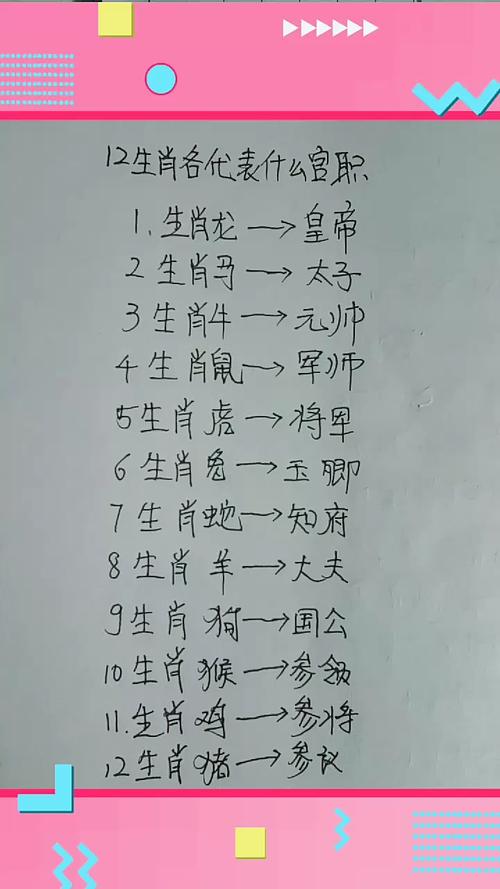 12生肖各代表什么官职
1.生肖龙→皇帝
2生肖马→太子
3生肖牛→元帅
4生肖鼠→军师
5生肖虎→将军
6生肖兔→玉卿
7生肖蛇→知府
8生肖羊→大夫
9生肖狗→国公
10生肖猴→参领
11.生肖鸡→参将
12生肖猪→参议